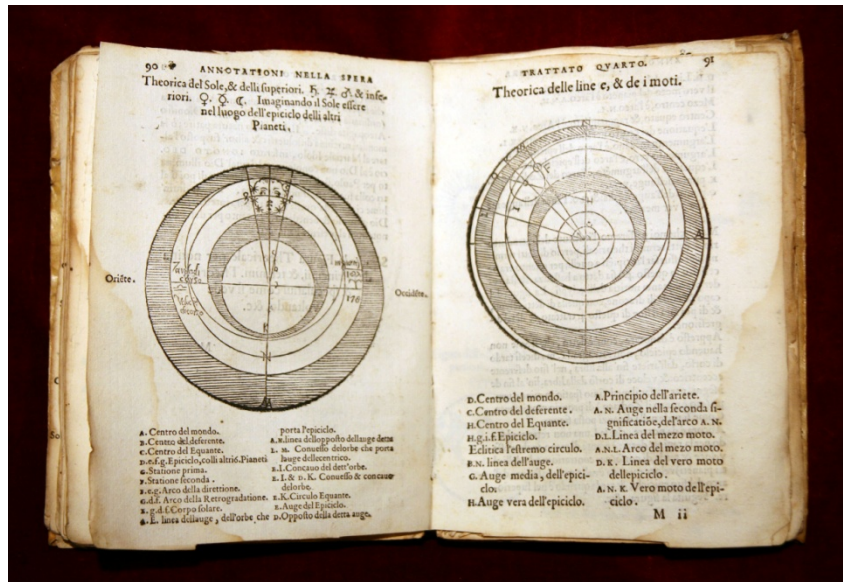 90
ANNOTATIONI NELLA SFERA
Theorica del Sole, & delli superiori. ♄ ♃ ♂ & infe-
riori. ♀. ☿. ☾. Imaginando il Sole essere
nel luogo dell'epiciclo delli altri
Pianeti.
Oriēte.
Occidēte.
A. Centro del mondo.
B. Centro del deferente.
C. Centro del Equante.
D.e.f.g. Epiciclo, colli altri 6. Pianeti
G. Statione prima.
F. Statione seconda.
E.e.g. Arco della direttione.
G.d.f. Arco della Retrogradatione.
E.g.d.f. Corpo solare.
A.E. linea dellauge, dell'orbe che
porta l'epiciclo.
A.B. linea dellopposto dellauge detta
L. M. Conuesso delorbe che porta
lauge dellecentrico.
I. Concauo del dett'orbe.
I. & D. K. Conuesso & concauo
delorbe.
K. Circulo Equante.
E. Auge del Epiciclo.
D. Opposto della detta auge.
91
TRATTATO QVARTO.
Theorica delle line e, & de i moti.
D. Centro del mondo.
C. Centro del deferente.
H. Centro del Equante.
H.g.i.f. Epiciclo.
Eclitica l'estremo circulo.
B.N. linea dell'auge.
G. Auge media, dell'epici-
clo.
H. Auge vera dell'epiciclo.
A. Principio dell'ariete.
A. N. Auge nella seconda si-
gnificatiōe, del'arco A. N.
D.L. Linea del mezo moto.
A.N.L. Arco del mezo moto.
D. K. Linea del vero moto
dellepiciclo.
A. N. K. Vero moto dell'epi-
ciclo.
M ii